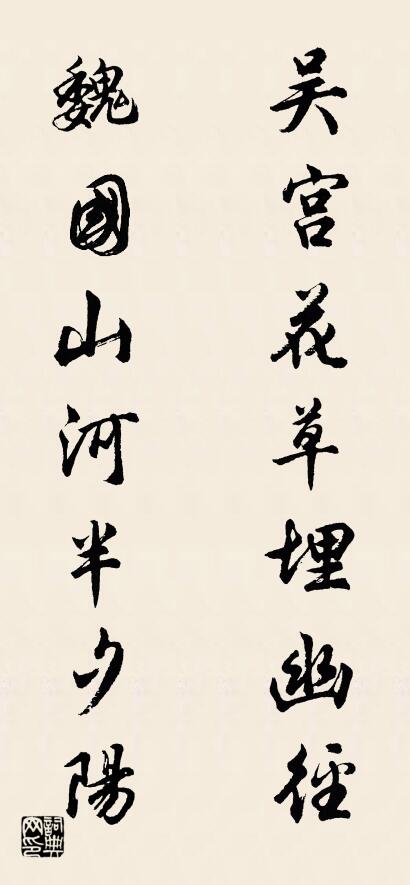 吴宫花草埋幽径
魏國山河半夕陽
詞典网印